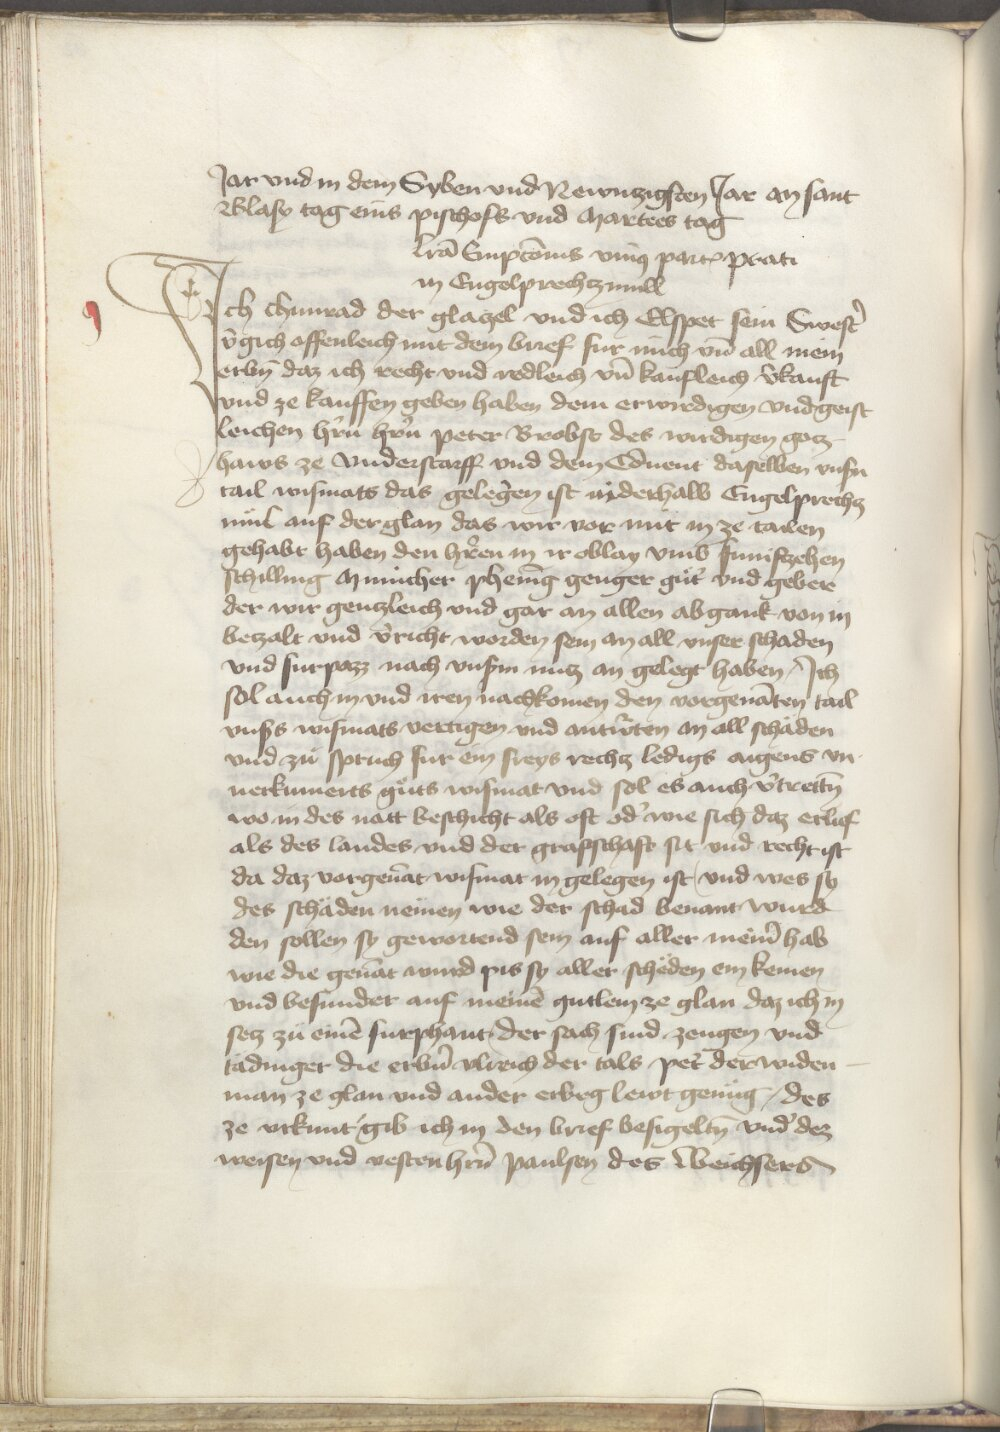 Jar vnd in dem Syben vnd Newnzigsten Jar an sant
Blasy tag eins pischofs vnd Martres tag
lrā Emptōnis vniꝯ part prati
in Engelprechtzmull
Ich Chunrad der glatzel vnd ich Elspet sein Swest̄
v̄gich offenleich mit dem brief fur mich vn̄ all mein
erbn̄ daz ich recht vnd redleich vn̄ kaufleich v̄kauft
vnd ze kauffen geben haben dem erwirdigen vnd geist
leichen hr̄n hr̄n peter Brobst des wirdigen gotz
haws ze Vnderstorff vnd dem Couent daselben vnsn̄
tail wismats das gelegen ist niderhalb Engelprechtz
mul auf der glan das wir vor mit in ze tailen
gehabt haben den hr̄en in ir oblay vmb funifzehen
schilling Municher phening genger gut̄ vnd geber
der wir gentzleich vnd gar an allen abgank von in
betzalt vnd v̄richt worden sein an all vnser schaden
vnd furpazz nach vnsm̄ nutz an gelegt haben / Ich
sol auch in vnd iren nachkomen den vorgenāten tail
vnsʒ wismats vertigen vnd antw̄ten an all schäden
vnd zu spruch fur ein freys rechtz ledigs aigens vn
uerkumerts guts wismat vnd sol es auch v̄tretn̄
wo in des natt beschicht als oft od̄ wie sich daz erlief
als des landes vnd der grafschaft sit vnd recht ist
da daz vorgenāt wismat in gelegen ist / vnd wes sy
des schäden nemen wie der schad benant wurd
den sollen sy gewortend sein auf aller mein̄ hab
wie die genāt wurd pis sy aller schëden ein kemen
vnd besunder auf meinē gutlein ze glan daz ich in
setz zu einē furphant der sach sind zeugen vnd
tädinger die erbn̄ vlreich der tals pet̄ der widen
man ze glan vnd ander erberg lewt genug / des
ze vrkunt gib ich in den brief besigeltn̄ vnd̄ dez
weisen vnd vesten hrn̄ paulsen des Weichsers